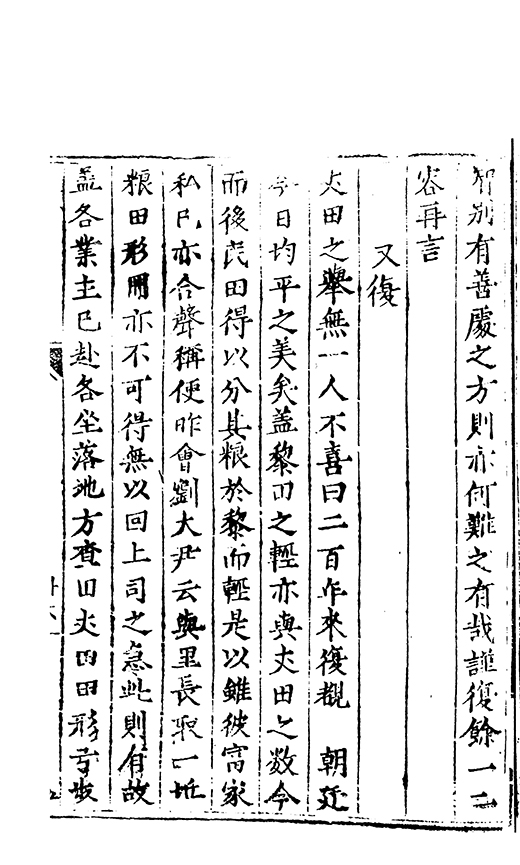 智別有善處之方則亦何難之有哉謹復餘一二
容再言
又復
丈田之舉無一人不喜曰二百年來復覩 朝廷
今日均平之美矣蓋黎田之輕亦與丈田之数今
而後民田得以分其粮於黎而輕是以雖彼富家
私已亦合聲稱便昨會劉大尹云與里長取一坵
粮田形圖亦不可得無以回上司之意此則有故
盖各業主已赴各坐落地方查田丈囬田形